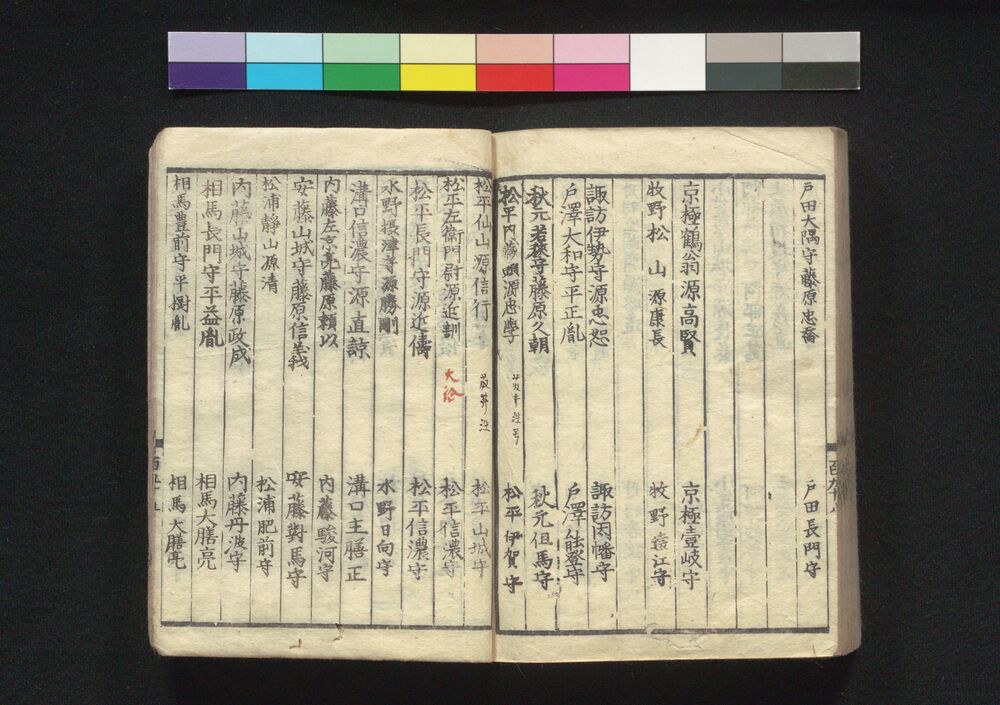 戸田大隅守藤原忠喬 戸田長門守
京極鶴翁源高賢 京極壹岐守
牧野松山源康長 牧野遠江守
諏訪伊勢守源忠恕 諏訪因幡守
戸澤大和守平正胤 戸澤能登守
秋元若狹守藤原久朝 秋元但馬守
松平内藏頭源忠學 松平伊賀守
松平仙山源信行 松平山城守
松平左衞門尉源近訓 松平信濃守
大給
松平長門守源近儔 松平信濃守
水野摂津守源勝剛 水野日向守
溝口信濃守源直諒 溝口主膳正
内藤左京亮藤原頼以 内藤駿河守
安藤山城守藤原信義 安藤對馬守
松浦靜山源清 松浦肥前守
内藤山城守藤原政成 内藤丹波守
相馬長門守平益胤 相馬大膳亮
相馬豊前守平樹胤 相馬大膳亮